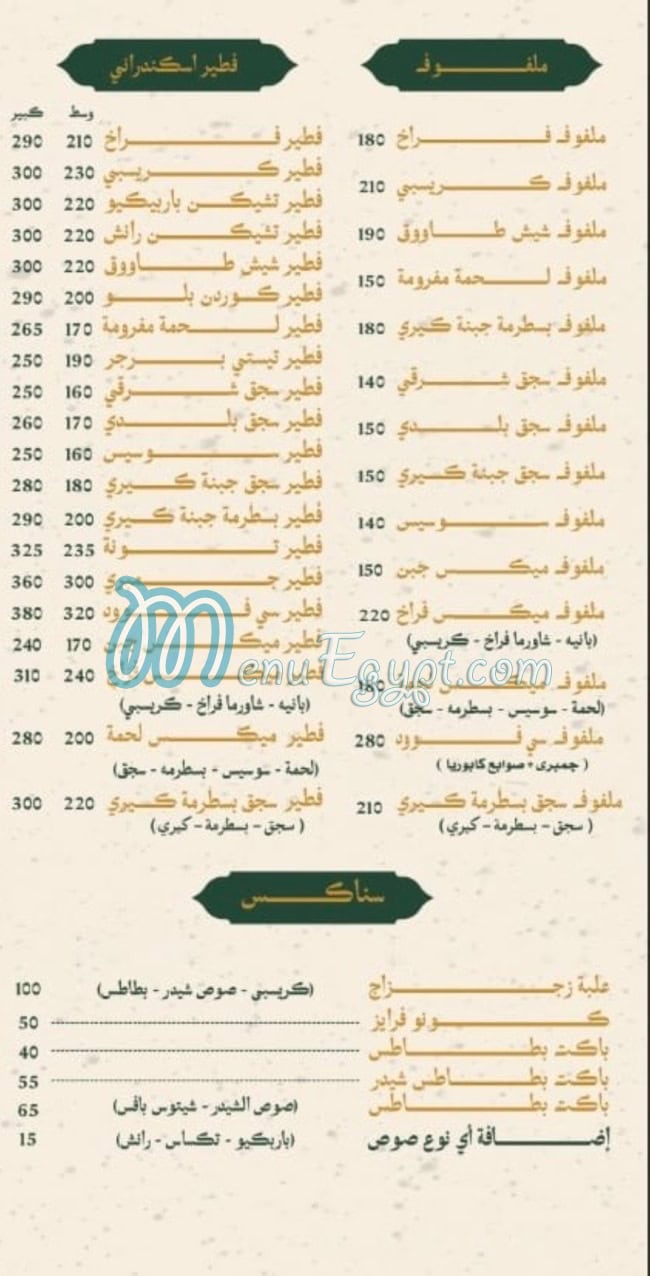 ملفوف
ملفوف فراخ 180
ملفوف كريسبي 210
ملفوف شيش طاووق 190
ملفوف لحمة مفرومة 150
ملفوف بسطرمة جبنة كيري 180
ملفوف سجق شرقي 140
ملفوف سجق بلدي 150
ملفوف سجق جبنة كيري 150
ملفوف سوسيس 140
ملفوف ميكس جبن 150
ملفوف ميكس فراخ 220
(بانيه - شاورما فراخ - كريسبي)
ملفوف ميكس لحمة 180
(لحمة - سوسيس - بسطرمه - سجق)
ملفوف سي فوود 280
( جمبرى + صوابع كابوريا )
ملفوف سجق بسطرمة كيري 210
( سجق - بسطرمة - كيري )
فطير اسكندراني
وسط كبير
فطير فراخ 210 290
فطير كريسبي 230 300
فطير تشيكن باربيكيو 220 300
فطير تشيكن رانش 220 300
فطير شيش طاووق 220 300
فطير كوردن بلو 200 290
فطير لحمة مفرومة 170 265
فطير تيستي برجر 190 250
فطير سجق شرقي 160 250
فطير سجق بلدي 170 260
فطير سوسيس 160 250
فطير سجق جبنة كيري 180 280
فطير بسطرمة جبنة كيري 200 290
فطير تونة 235 325
فطير جمبري 300 360
فطير سي فوود 320 380
فطير ميكس جبن 170 240
فطير ميكس فراخ 240 310
(بانيه - شاورما فراخ - كريسبي)
فطير ميكس لحمة 200 280
(لحمة - سوسيس - بسطرمه - سجق)
فطير سجق بسطرمة كيري 220 300
( سجق - بسطرمة - كيري )
MenuEgypt.com
سناكس
علبة زجزاج (كريسبي - صوص شيدر - بطاطس) 100
كونو فرايز 50
باكت بطاطس 40
باكت بطاطس شيدر 55
باكت بطاطس (صوص الشيدر - شيتوس بافس) 65
إضافة أي نوع صوص (باربكيو - تكساس - رانش) 15